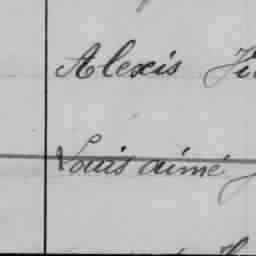 Alexis
Louis aimé